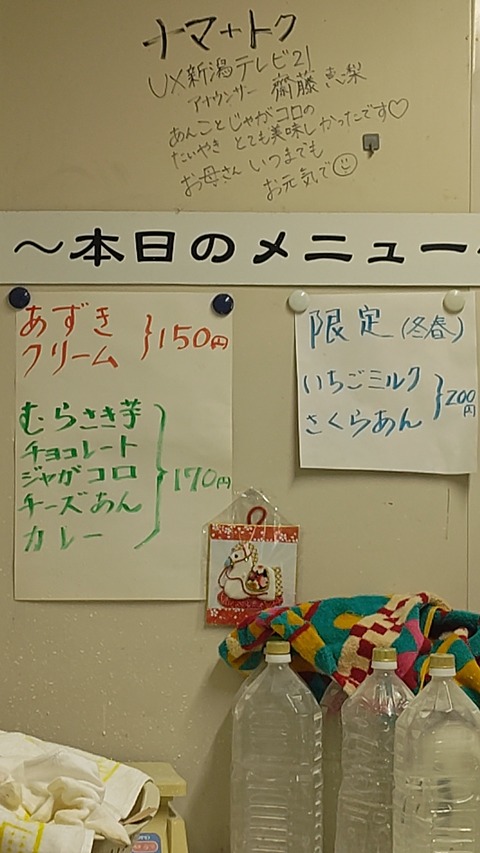 ナマ+トク
UX新潟テレビ21
アナウンサー 齋藤 恵梨
あんことじゃがコロの
たいやき とても美味しかったです♡
お母さん いつまでも
お元気で☺
～本日のメニュー
あずき
クリーム
}150円
むらさき芋
チョコレート
ジャがコロ
チーズあん
カレー
}170円
限定(冬春)
いちごミルク
さくらあん
}200円